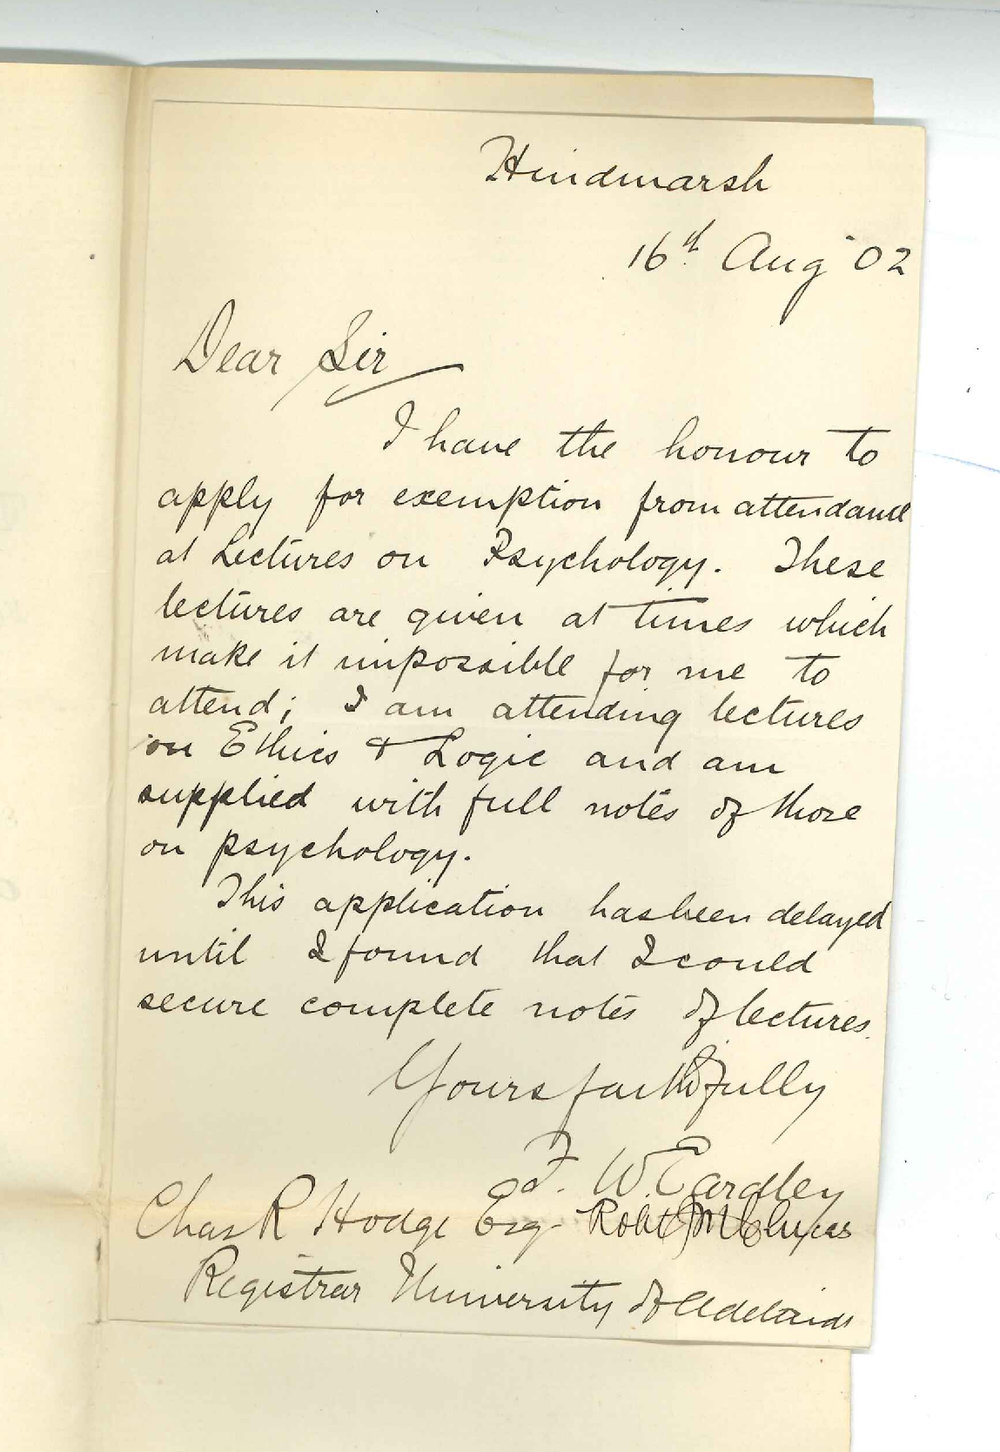 Hindmarsh
16th Aug '02
Dear Sir
I have the honour to
apply for exemption from attendance
at Lectures on Psychology. These
lectures are given at times which
make it impossible for me to
attend; I am attending lectures
on Ethics & Logic and am
supplied with full notes of those
on psychology.
This application has been delayed
until I found that I could
secure complete notes of lectures.
Yours faithfully
F. W. Eardley
Chas R Hodge Esq. Robt
Registrar University of Adelaide